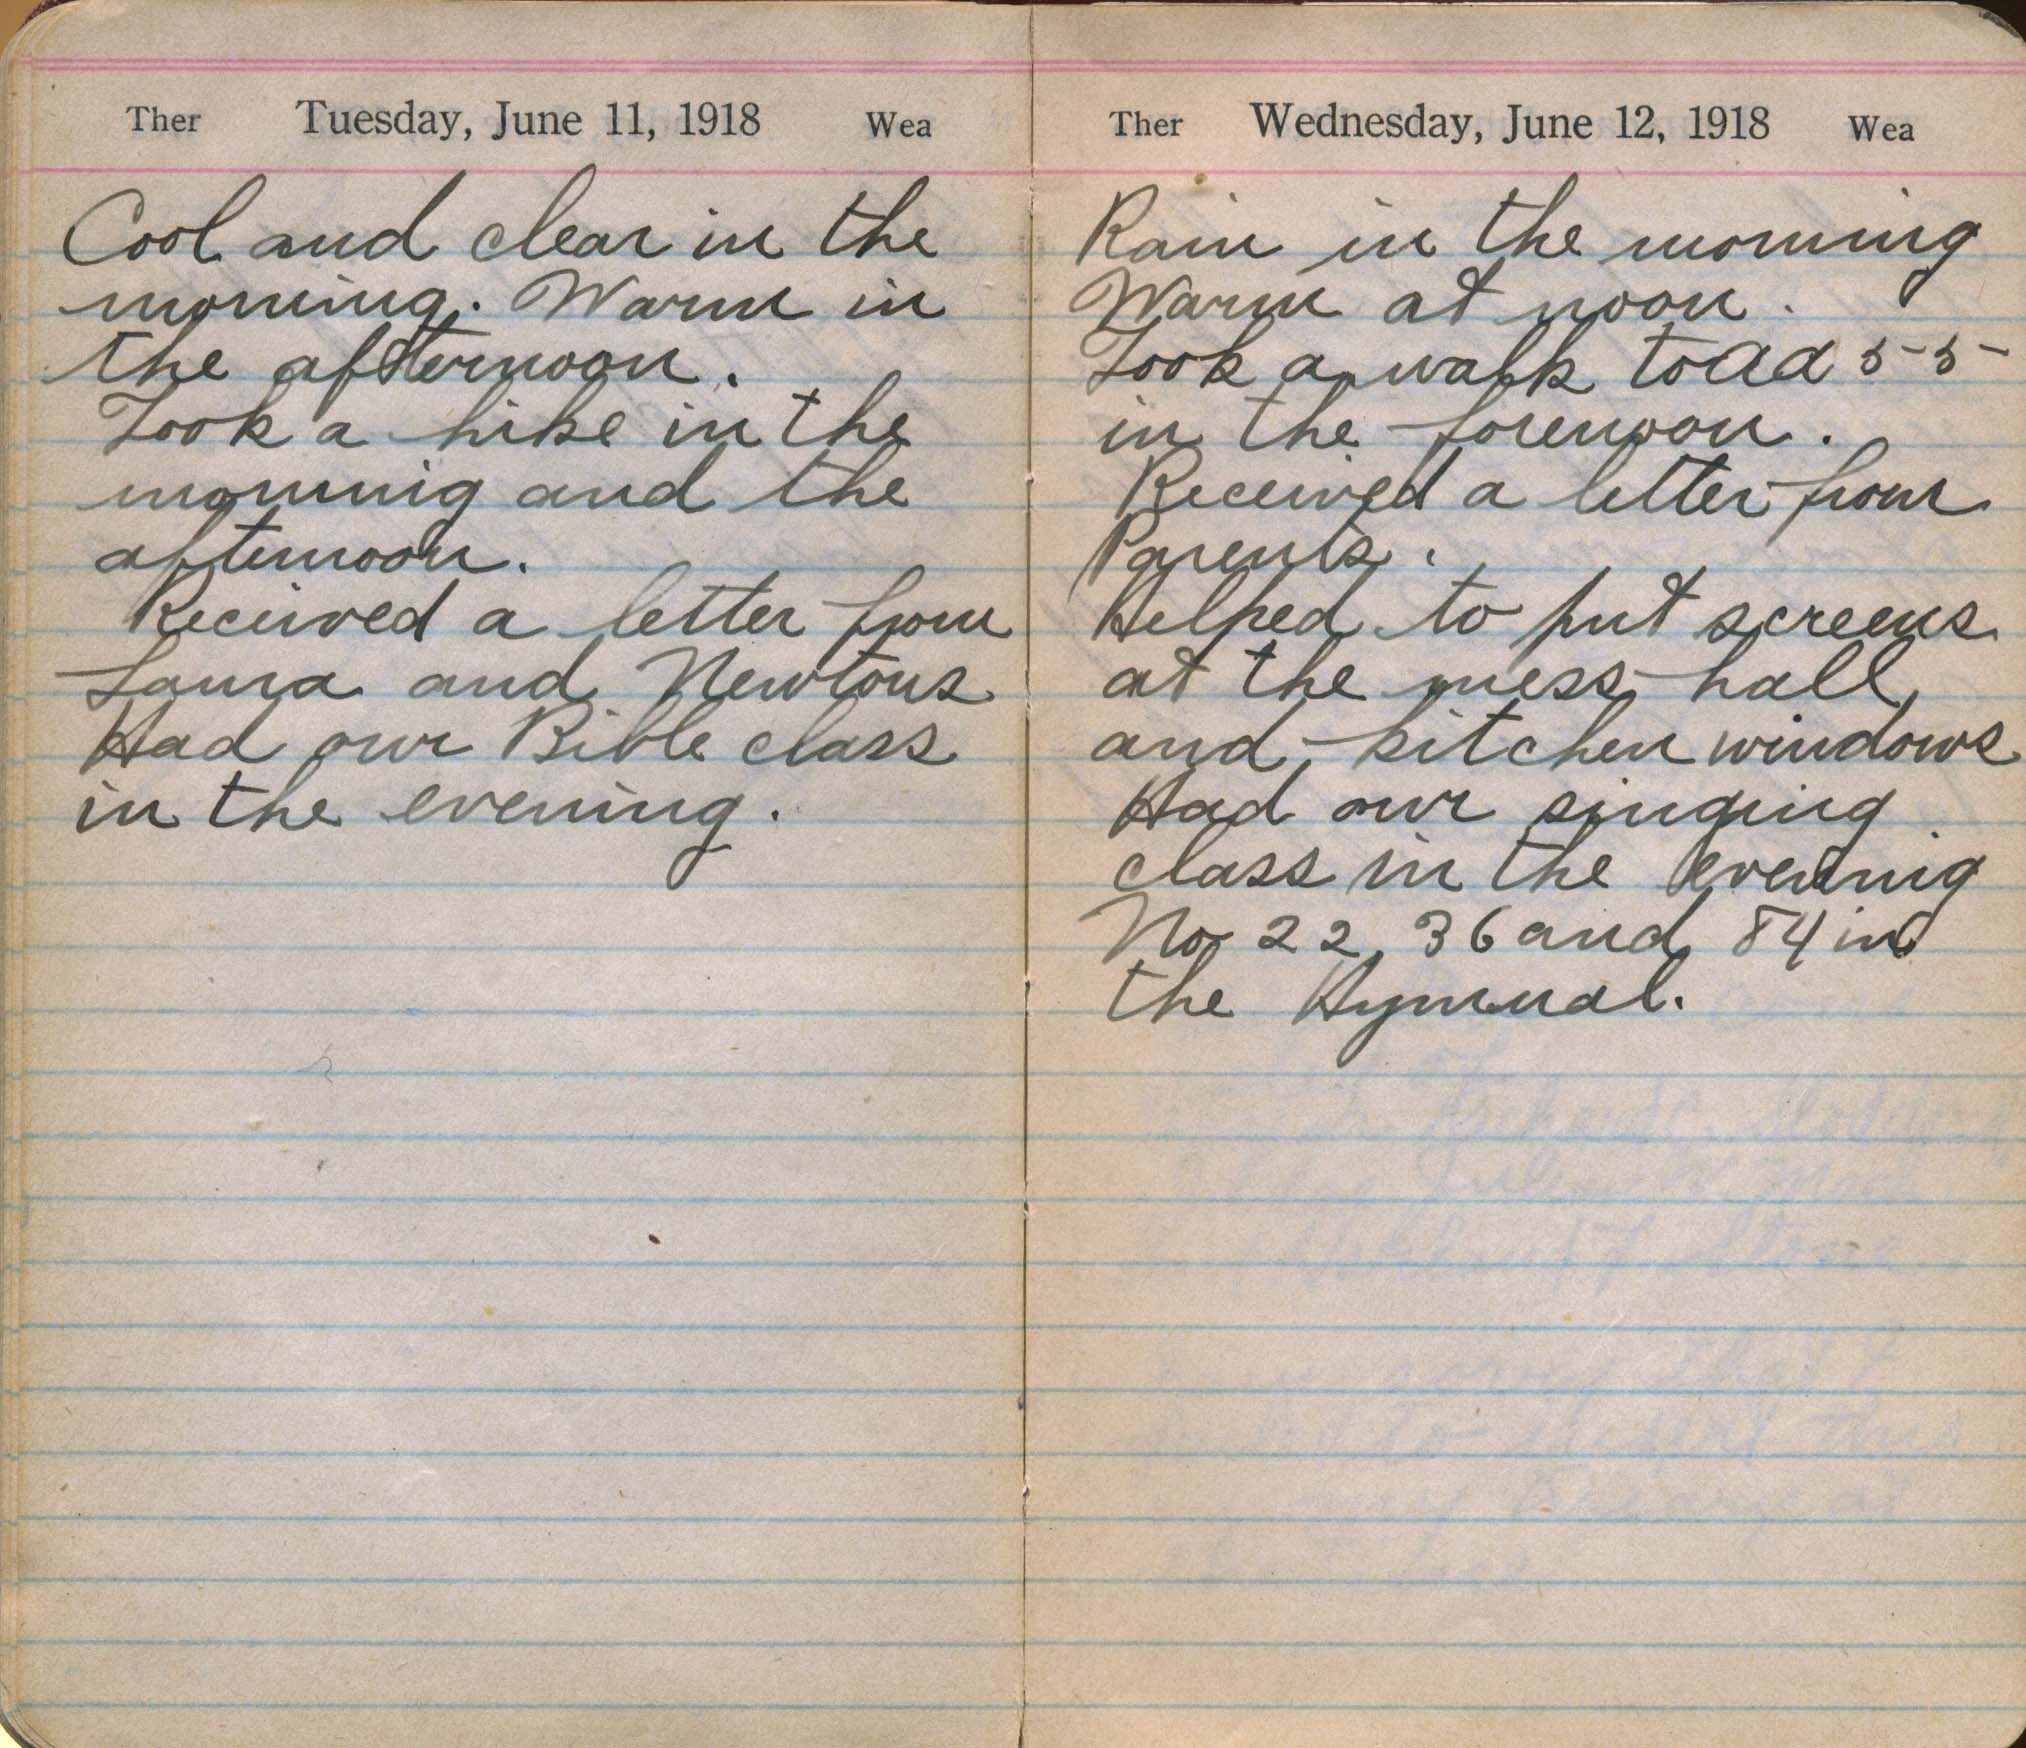 Ther Tuesday, June 11, 1918 Wea
Cool and clear in the
morning. Warm in
the afternoon.
Took a hike in the
morning and the
afternoon.
Received a letter from
Laura and Newtons
Had our Bible class
in the evening.
Ther Wednesday, June 12, 1918 Wea
Rain in the morning
Warm at noon.
Took a walk to Ad 55
in the forenoon.
Received a letter from
Parents.
Helped to put screens
at the mess hall
and kitchen windows
Had our singing
class in the evening
No 22, 36 and 84 in
the Hymnal.